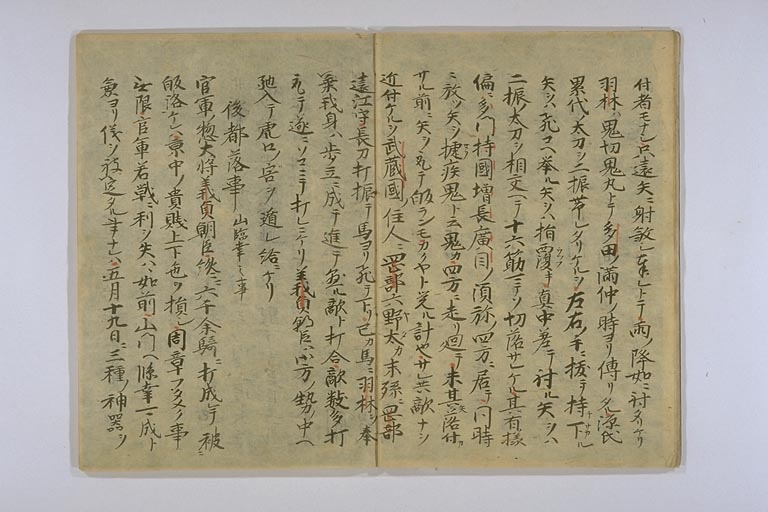 付者モナシ只遠矢ニ射殺シ奉レトテ雨ノ降如ニ討タリケリ
羽林ハ鬼切鬼丸トテ多田ノ満仲ノ時ヨリ傳リタル源氏
累代ノ太刀ヲ二振帯レタリケルヲ左右ノ手ニ抜テ持下ル
矢ヲハ飛コヘ挙ル矢ヲハ指覆キ真中差テ討ル矢ヲハ
二振ノ太刀ヲ相交ヘテ十六筋ニテソ切落サレケル其有様
偏ニ多門持國増長廣目ノ須弥ノ四方ニ居テ同時
ニ放ツ矢ヲ捷疾鬼ト云鬼カ四方ニ走リ廻テ未其落付
サル前ニ矢ヲ取テ皈ランモカクヤト覚ル計也サ共敵ナシ
近付ケルヲ武蔵國住人ニ岡部六野太カ末孫岡部
遠江守長刀打振テ馬ヨリ飛テ下リ己カ馬ニ羽林ヲ奉
乗我身ハ歩立ニ成テ進テ懸ル敵ト打合敵数多打
取テ遂ニソコニテ打レニケリ義貞朝臣ハ御方ノ勢ノ中ヘ
馳入テ虎口ノ害ヲ遁レ給ニケリ
後都落事 山臨幸之事
官軍ノ惣大将義貞朝臣終ニ六千余騎ニ打成テ被
皈洛ケハ京中ノ貴賤上下色ヲ損シ周章フタメク事
無限官軍若戦ニ利ヲ失ハ如前山門ヘ臨幸可成ト
兼ヨリ儀ヲ被定タル事ナレハ五月十九日ニ三種ノ神器ヲ